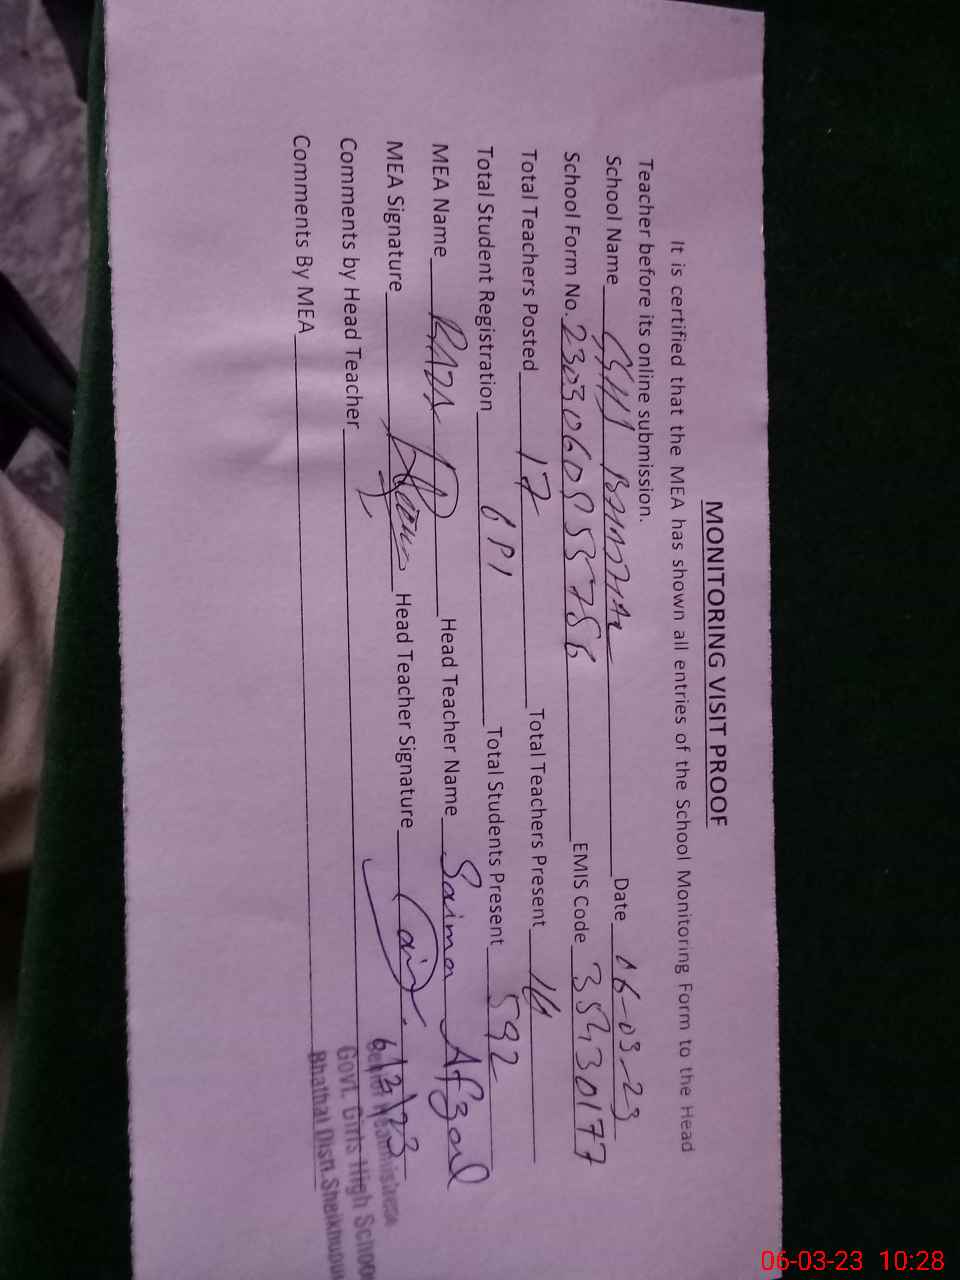 MONITORING VISIT PROOF
It is certified that the MEA has shown all entries of the School Monitoring Form to the Head
Teacher before its online submission.
School Name BHATHAL Date 06-03-23
School Form No. EMIS Code 35430177
Total Teachers Posted 17 Total Teachers Present 14
Total Student Registration Total Students Present 592
MEA Name RAZA Head Teacher Name Saima Afzal
MEA Signature Head Teacher Signature
Comments by Head Teacher
Comments By MEA
Senior Headmistress
Govt. Girls High School
Bhathal Distt. Sheikhupu
06-03-23 10:28